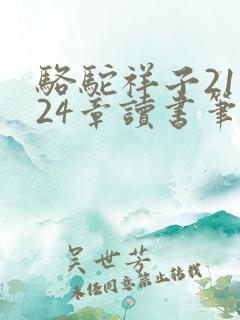 駱駝祥子21
24章讀書筆
吴世芳
未经同意禁止转载